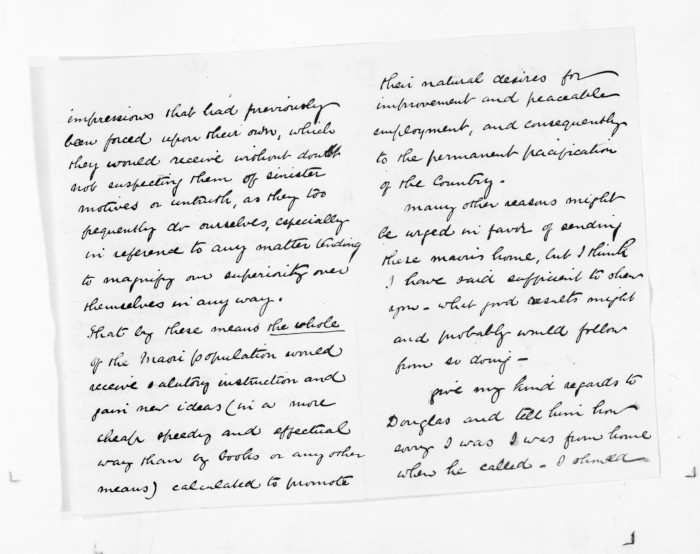 impressions that had previously
been forced upon their own, which
they would receive without doubt
not suspecting them of sinister
motives or untruth, as they too
frequently do ourselves, especially
in reference to any matter tending
to magnify our superiority over
themselves in any way.
That by these means the whole
of the Maori population would
receive salutory instruction and
gain new ideas (in a more
cheap speedy and effectual
way than by books or any other
means) calculated to promote
their natural desires for
improvement and peaceable
employment, and consequently
to the permanent pacification
of the Country.
Many other reasons might
be urged in favor of sending
these maoris home, but I think
I have said sufficient to shew
you - what good results might
and probably would follow
from so doing -
give my kind regards to
Douglas and tell him how
sorry I was I was from home
when he called - I should